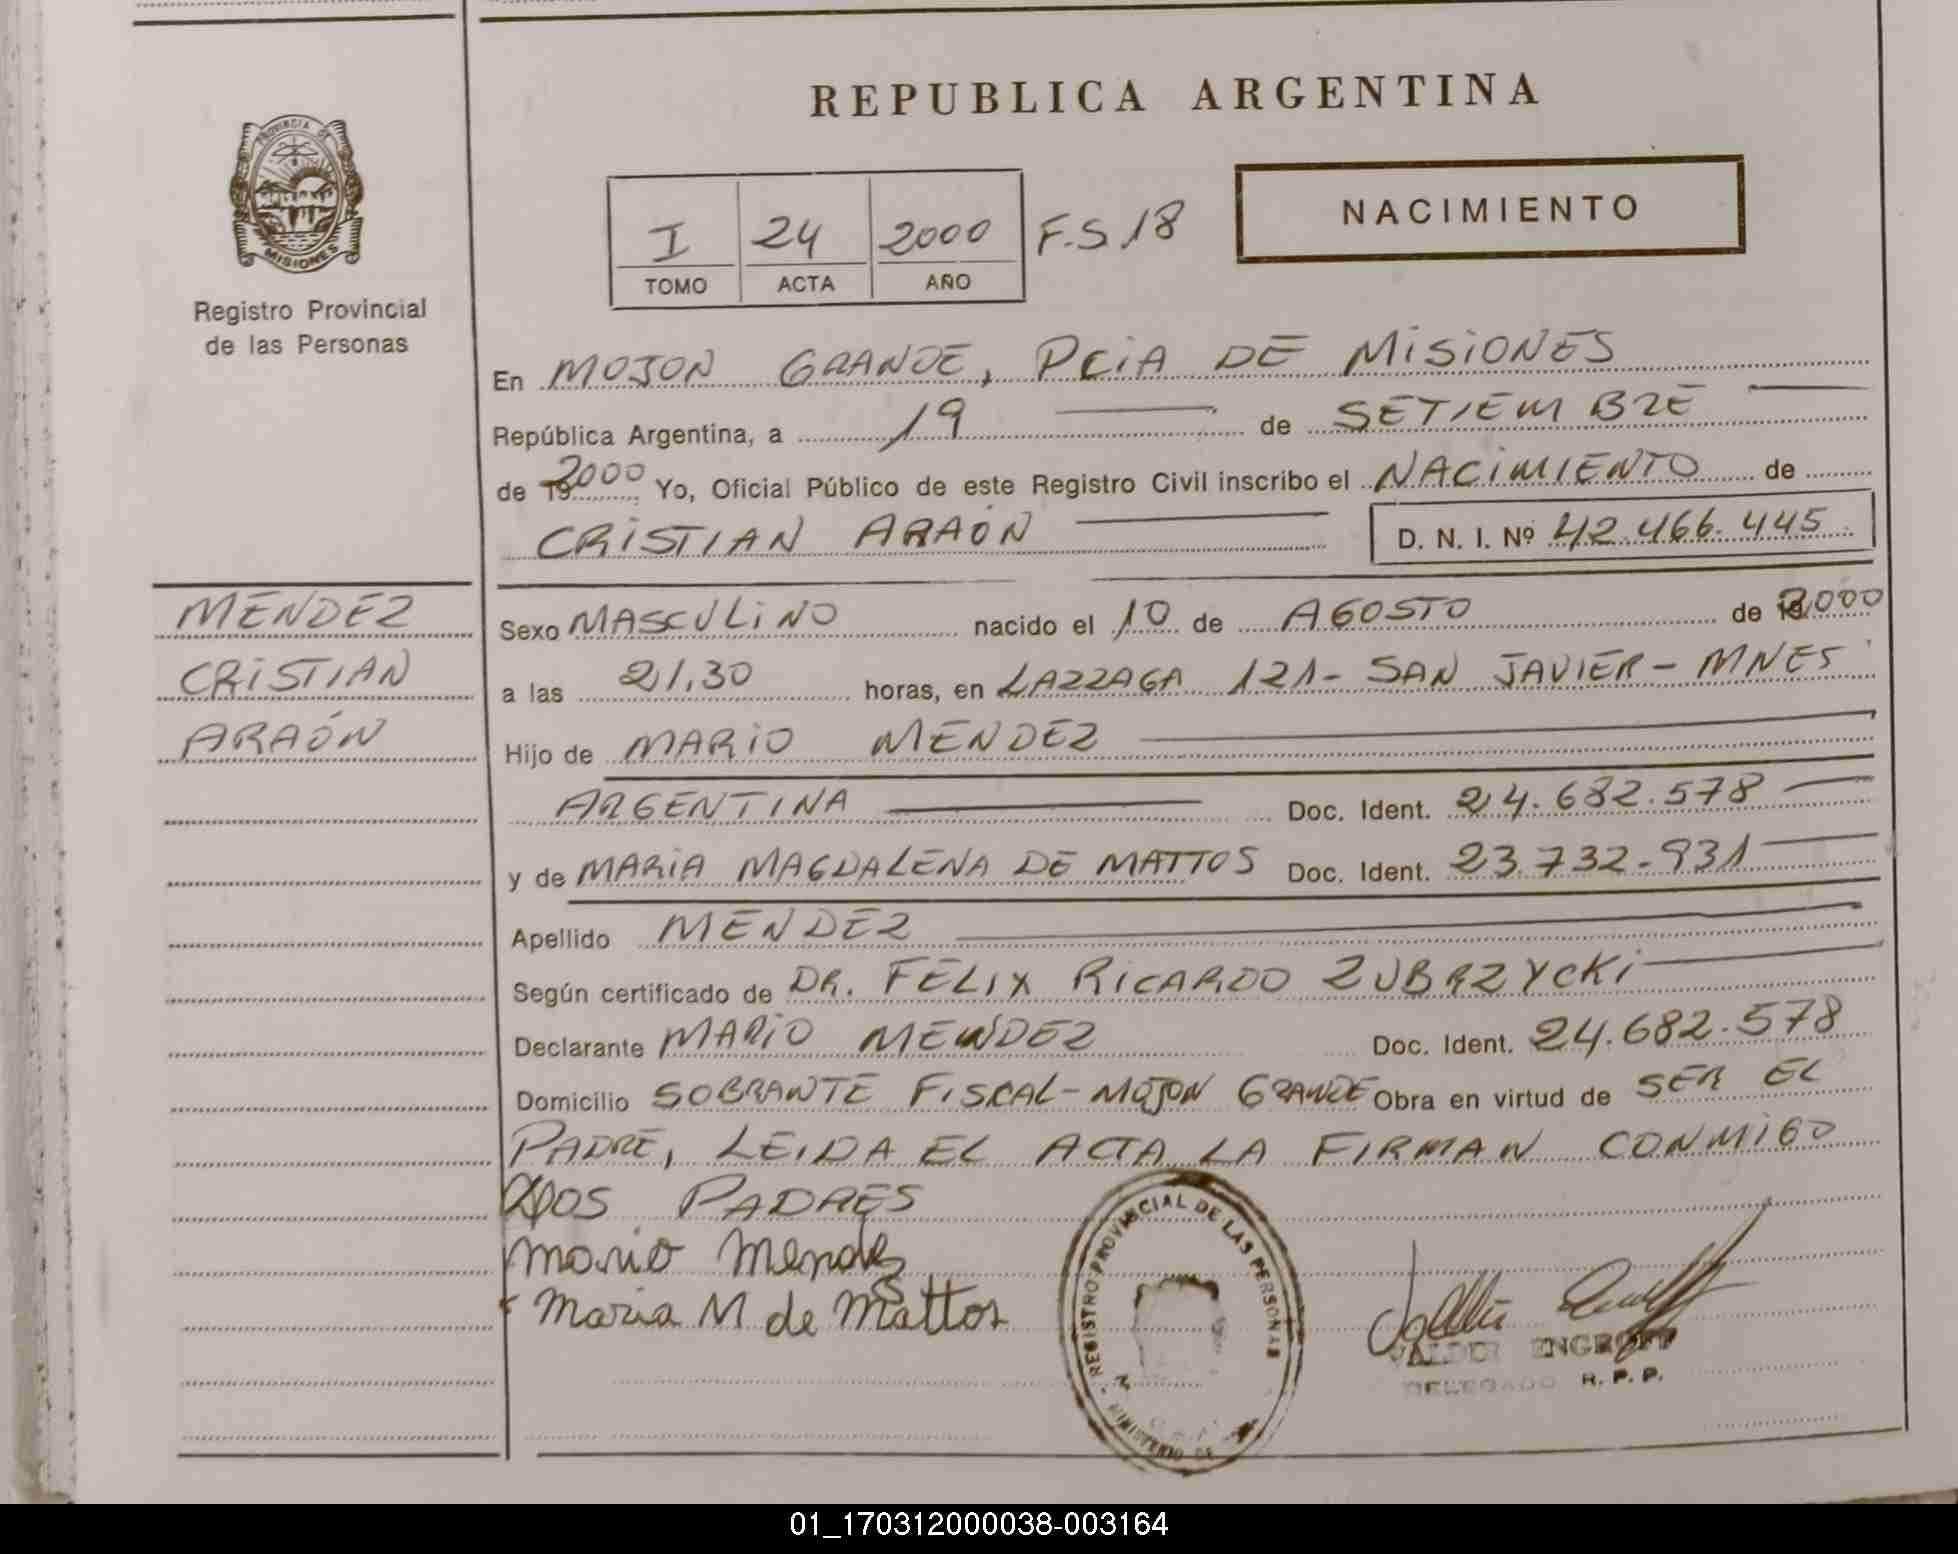 REPUBLICA ARGENTINA
PROVINCIA DE
MISIONES
Registro Provincial
de las Personas
I 24 2000 F.S 18
TOMO ACTA AÑO
NACIMIENTO
En MOJON GRANDE, PCIA DE MISIONES
República Argentina, a 19 de SETIEMBRE
de 2000 Yo, Oficial Público de este Registro Civil inscribo el NACIMIENTO de
CRISTIAN ARAÓN D. N. I. Nº 42.466.445
MENDEZ
CRISTIAN
ARAÓN
Sexo MASCULINO nacido el 10 de AGOSTO de 2000
a las 21.30 horas, en LAZZAGA 121- SAN JAVIER - MNES
Hijo de MARIO MENDEZ
ARGENTINA Doc. Ident. 24.682.578
y de MARIA MAGDALENA DE MATTOS Doc. Ident. 23.732.931
Apellido MENDEZ
Según certificado de DR. FELIX RICARDO ZUBRZYCKI
Declarante MARIO MENDEZ Doc. Ident. 24.682.578
Domicilio SOBRANTE FISCAL - MOJON GRANDE Obra en virtud de SER EL
PADRE, LEIDA EL ACTA LA FIRMAN CONMIGO
LOS PADRES
Mario Mendez
Maria M de Mattos
REGISTRO PROVINCIAL DE LAS PERSONAS
MINISTERIO DE
ENGROFF
DELEGADO R. P. P.
01_170312000038-003164